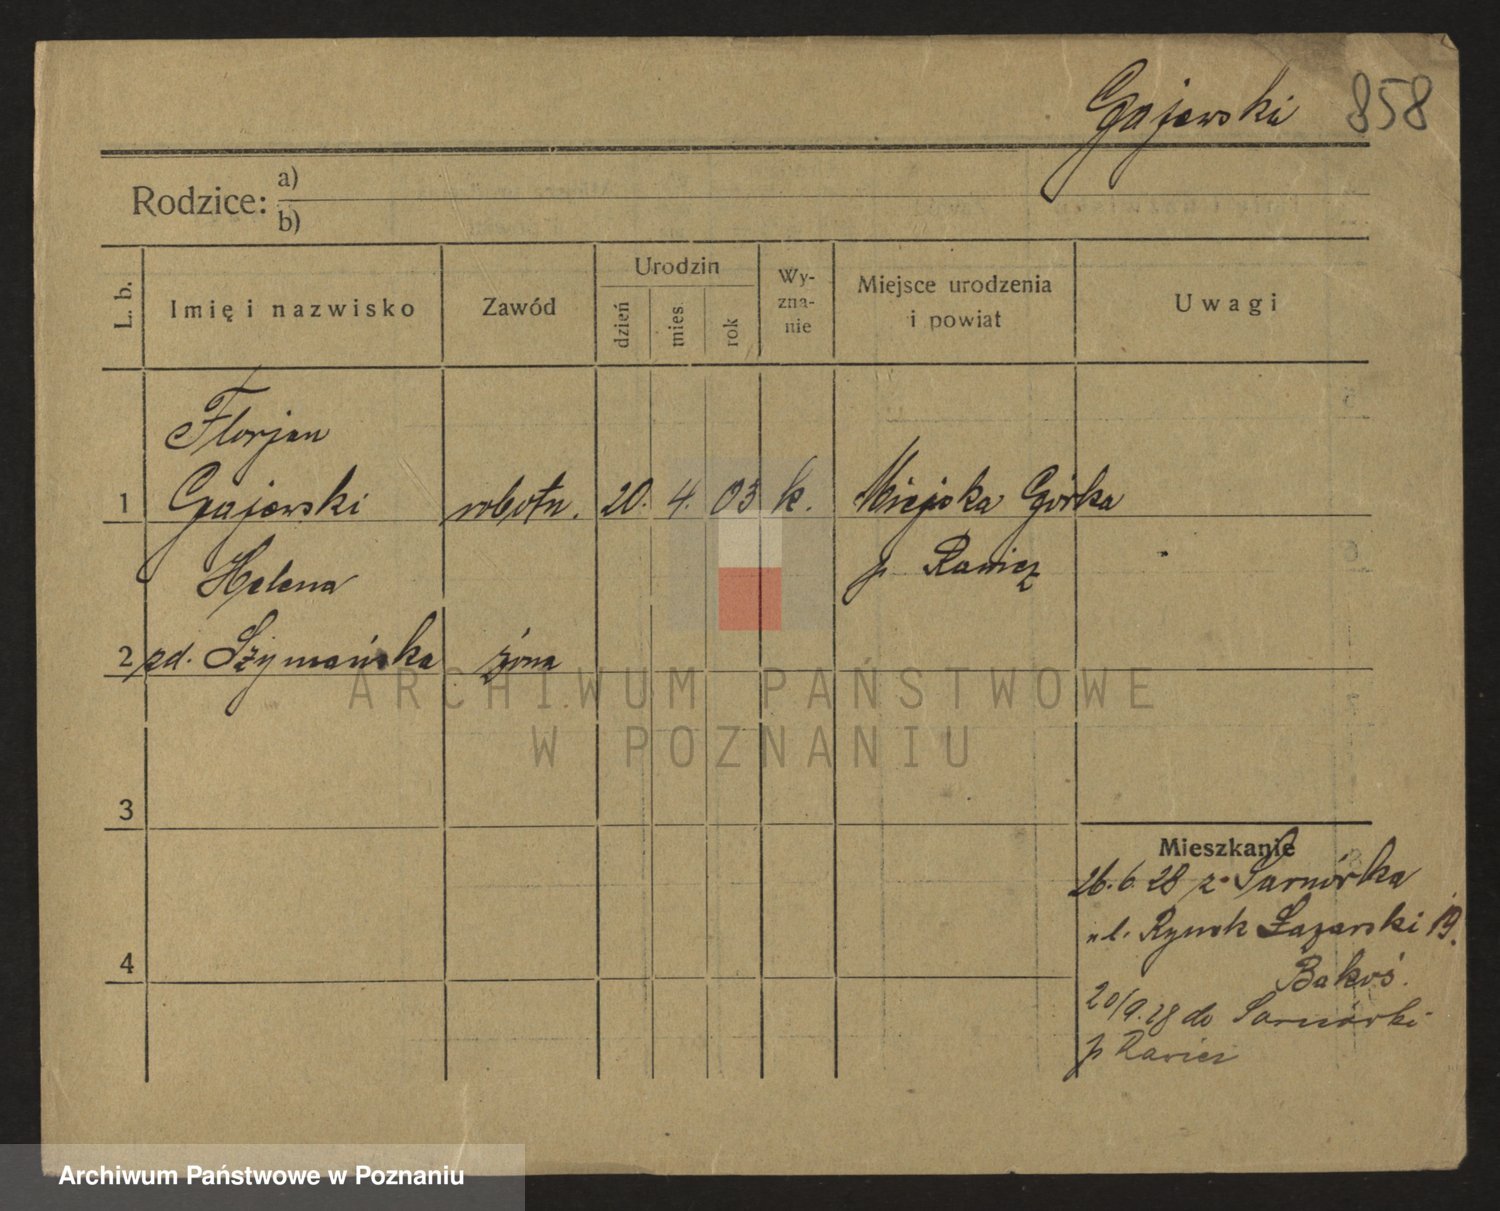 Gajewski 858
Rodzice: a)
b)
L. b.
Imię i nazwisko
Zawód
Urodzin
dzień
mies.
rok
Wy-
zna-
nie
Miejsce urodzenia
i powiat
Uwagi
Florjan
1 Gajewski robotn. 20. 4. 03 k. Miejska Górka
p Rawicz
Helena
2 zd. Szymańska żona
3
4
Mieszkanie
26. 6. 28 z Sarnówka
ul. Rynek Łazarski 19.
Bakoś.
20/9. 28 do Sarnówki
p Rawicz
ARCHIWUM PAŃSTWOWE
W POZNANIU
Archiwum Państwowe w Poznaniu